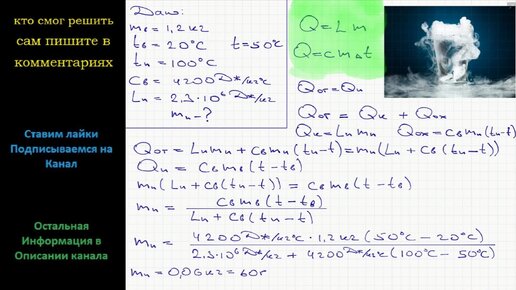 кто смог решить
сам пишите в
комментариях
Ставим лайки
Подписываемся на
Канал
Остальная
Информация в
Описании канала
Дано:
mв = 1,2 кг
tв = 20°C t = 50°C
tп = 100°C
Cв = 4200 Дж/кг°C
Lп = 2,3·10⁶ Дж/кг
mп - ?
Q = Lm
Q = cmΔt
Qот = Qп
Qот = Qк + Qох
Qк = Lпmп Qох = Cвmп(tп-t)
Qот = Lпmп + Cвmп(tп-t) = mп(Lп + Cв(tп-t))
Qп = Cвmв(t-tв)
mп(Lп + Cв(tп-t)) = Cвmв(t-tв)
mп = Cвmв(t-tв) / Lп + Cв(tп-t)
mп = 4200 Дж/кг°C · 1,2 кг (50°C - 20°C) / 2,3·10⁶ Дж/кг + 4200 Дж/кг°C (100°C - 50°C)
mп = 0,06 кг = 60г